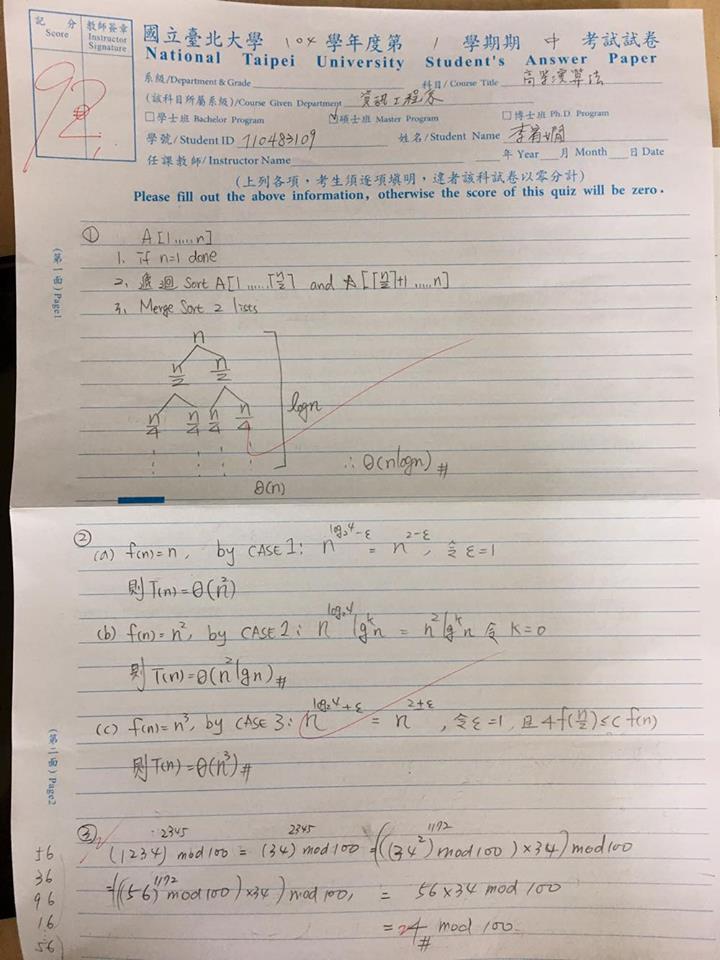 記 分 Score
教師簽章 Instructor Signature
92
國立臺北大學 104 學年度第 1 學期期 中 考試試卷
National Taipei University Student's Answer Paper
系級/Department & Grade 科目/Course Title 高等演算法
(該科目所屬系級)/Course Given Department 資訊工程系
□學士班 Bachelor Program ☑碩士班 Master Program □博士班 Ph.D. Program
學號/Student ID 710483109 姓名/Student Name 李
任課教師/Instructor Name 年 Year 月 Month 日 Date
(上列各項,考生須逐項填明,違者該科試卷以零分計)
Please fill out the above information, otherwise the score of this quiz will be zero.
(第一面) Page1
① A[1.....n]
1. If n=1 done
2. 遞迴 Sort A[1.....⌈n/2⌉] and A[⌈n/2⌉+1.....n]
3. Merge Sort 2 lists
n
n/2 n/2
n/4 n/4 n/4 n/4
logn
∴ θ(nlogn) #
θ(n)
②
(a) f(n)=n, by CASE1: n^(log₂4-ε) = n^(2-ε), 令 ε=1
則 T(n)=θ(n²)
(b) f(n)=n², by CASE2: n^(log₂4) lg^k n = n² lg^k n 令 k=0
則 T(n)=θ(n² lgn) #
(c) f(n)=n³, by CASE3: n^(log₂4+ε) = n^(2+ε), 令ε=1, 且 4f(n/2)≤c f(n)
則 T(n)=θ(n³) #
(第二面) Page2
③ (1234)^2345 mod 100 = (34)^2345 mod 100 = (((34²)^1172 mod 100) × 34) mod 100
= (((56)^1172 mod 100) × 34) mod 100, = 56×34 mod 100
= 4 mod 100 #
56
36
96
16
56